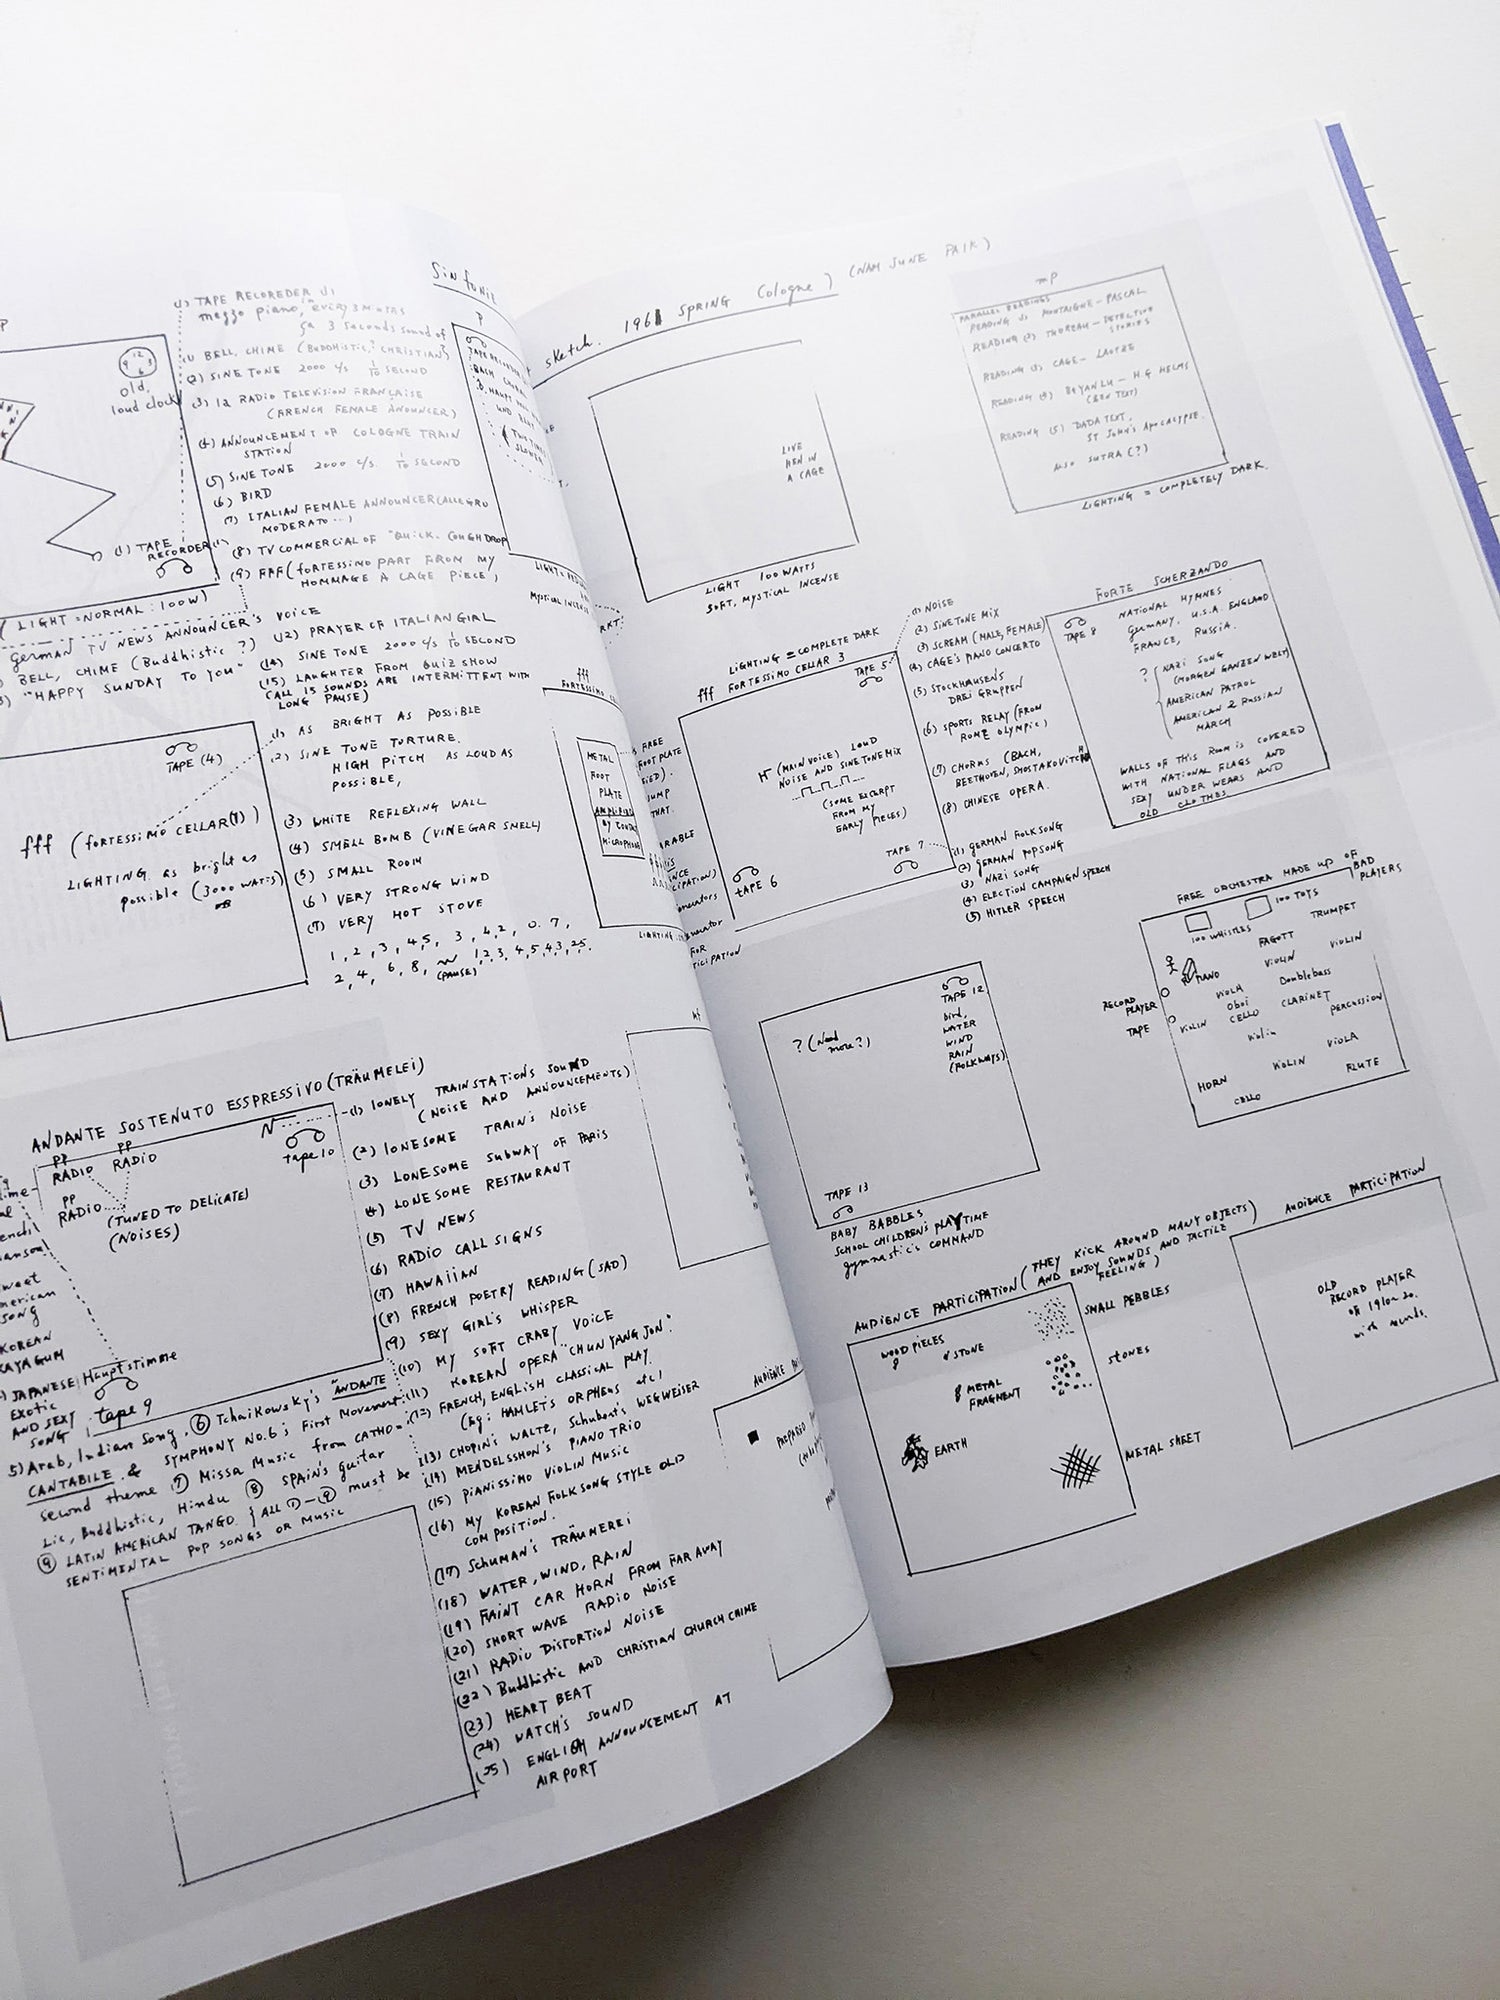 (1) TAPE RECOREDER (1)
mezzo piano, in every 3 minutes
ca 3 seconds sound of
(1) BELL, CHIME (BUDDHISTIC,? CHRISTIAN)
(2) SINE TONE 2000 c/s 1/10 SECOND
(3) la RADIO TELEVISION FRANCAISE
(FRENCH FEMALE ANOUNCER)
(4) ANNOUNCEMENT OF COLOGNE TRAIN
STATION
(5) SINE TONE 2000 c/s. 1/10 SECOND
(6) BIRD
(7) ITALIAN FEMALE ANNOUNCER (ALLEGRO
MODERATO ...)
(8) TV COMMERCIAL OF "QUICK. COUGH DROP
(9) FFF (FORTESSIMO PART FROM MY
HOMMAGE A CAGE PIECE,
old,
loud clock
12
9 3
6
(1) TAPE
RECORDER (1)
( LIGHT = NORMAL : 100W)
german TV NEWS ANNOUNCER'S VOICE
BELL, CHIME (Buddhistic ?)
"HAPPY SUNDAY TO YOU"
(12) PRAYER OF ITALIAN GIRL
(14) SINE TONE 2000 c/s 1/10 SECOND
(15) LAUGHTER FROM QUIZ SHOW
(ALL 15 SOUNDS ARE INTERMITTENT WITH
LONG PAUSE)
TAPE (4)
fff (fortessimo CELLAR(1) )
LIGHTING. as bright as
possible (3000 WATTS)
(1) AS BRIGHT AS POSSIBLE
(2) SINE TONE TORTURE.
HIGH PITCH AS LOUD AS
POSSIBLE,
(3) WHITE REFLEXING WALL
(4) SMELL BOMB (VINEGAR SMELL)
(5) SMALL ROOM
(6) VERY STRONG WIND
(7) VERY HOT STOVE
1, 2, 3, 4,5, 3, 4,2, 0.7,
2, 4, 6, 8, 1,2,3, 4,5,4,3, 2,5.
(PAUSE)
ANDANTE SOSTENUTO ESSPRESSIVO (TRÄUMELEI)
PP
RADIO
PP
RADIO
PP
RADIO
(TUNED TO DELICATE)
(NOISES)
tape 10
sweet
american
song
KOREAN
KAYAGUM
JAPANESE
Exotic
AND SEXY
SONG
Hauptstimme
tape 9
5) Arab, Indian Song, ⑥ Tchaikowsky's "ANDANTE
CANTABILE & SYMPHONY NO.6's First Movement
second theme ⑦ Missa Music from CATHO-
Lic, Buddhistic, Hindu ⑧ SPAIN'S guitar
⑨ LATIN AMERICAN TANGO. { ALL ①-⑨ must be
SENTIMENTAL POP SONGS or MUSIC
(1) LONELY TRAIN STATIONS SOUND
(NOISE AND ANNOUNCEMENTS)
(2) LONESOME TRAIN'S NOISE
(3) LONESOME SUBWAY OF PARIS
(4) LONESOME RESTAURANT
(5) TV NEWS
(6) RADIO CALL SIGNS
(7) HAWAIIAN
(8) FRENCH POETRY READING (SAD)
(9) SEXY GIRL'S WHISPER
(10) MY SOFT CRABY VOICE
(11) KOREAN OPERA "CHUN YANG JON".
(12) FRENCH, ENGLISH CLASSICAL PLAY.
(eg: HAMLET'S ORPHEUS etc)
(13) CHOPIN'S WALTZ, Schubert's WEGWEISER
(14) MENDELSSHON'S PIANO TRIO
(15) PIANISSIMO VIOLIN MUSIC
(16) MY KOREAN FOLKSONG STYLE OLD
COMPOSITION.
(17) SCHUMAN'S TRÄUMEREI
(18) WATER, WIND, RAIN
(19) FAINT CAR HORN FROM FAR AWAY
(20) SHORT WAVE RADIO NOISE
(21) RADIO DISTORTION NOISE
(22) Buddhistic AND CHRISTIAN CHURCH CHIME
(23) HEART BEAT
(24) WATCH'S SOUND
(25) ENGLISH ANNOUNCEMENT AT
AIRPORT
Sinfonie
P
TAPE RECORDER
BACH
UND
SLOWER
MYSTICAL INCENSE
fff
FORTESSIMO
METAL
FOOT
PLATE
AMPLIFIED
BY CONTACT
MICROPHONE
LIGHTING
AUDIENCE
PREPARED
sketch. 1961 SPRING Cologne ) (NAM JUNE PAIK)
LIVE
HEN IN
A CAGE
LIGHT 100 WATTS
SOFT, MYSTICAL INCENSE
mP
PARALLEL READINGS
READING (1) MONTAIGNE - PASCAL
READING (2) THOREAU - DETECTIVE
STORIES
READING (3) CAGE - LAOTZE
READING (4) - H.G HELMS
READING (5) DADA TEXT,
ST JOHN'S Apocalypse.
ALSO SUTRA (?)
LIGHTING = COMPLETELY DARK.
LIGHTING = COMPLETE DARK
fff FORTESSIMO CELLAR 3
TAPE 5
(MAIN VOICE) LOUD
NOISE AND SINETONE MIX
(SOME EXCERPT
FROM MY
EARLY PIECES)
TAPE 6
TAPE 7
(1) NOISE
(2) SINETONE MIX
(3) SCREAM (MALE, FEMALE)
(4) CAGE'S PIANO CONCERTO
(5) STOCKHAUSEN'S
DREI GRUPPEN
(6) SPORTS RELAY (FROM
ROME OLYMPIC)
(7) CHORUS (BACH,
BEETHOVEN, SHOSTAKOVITCH
(8) CHINESE OPERA.
(1) GERMAN FOLKSONG
(2) GERMAN POPSONG
(3) NAZI SONG
(4) ELECTION CAMPAIGN SPEECH
(5) HITLER SPEECH
FORTE SCHERZANDO
TAPE 8
NATIONAL HYMNES
Germany, U.S.A. ENGLAND
FRANCE, Russia.
? NAZI SONG
(MORGEN GANZEN WELT)
AMERICAN PATROL
AMERICAN & Russian
MARCH
WALLS OF THIS ROOM IS COVERED
WITH NATIONAL FLAGS AND
SEXY UNDER WEARS AND
OLD CLOTHES
FREE
FOOT PLATE
JUMP
THAT.
FOR
? (Need
more?)
TAPE 12
bird,
WATER
WIND
RAIN
(FOLKWAYS)
TAPE 13
BABY BABBLES
SCHOOL CHILDREN'S PLAYTIME
gymnastic's COMMAND
FREE ORCHESTRA MADE UP OF BAD
PLAYERS
100 WHISTLES
100 TOYS
TRUMPET
FAGOTT
VIOLIN
PIANO
VIOLIN
RECORD
PLAYER
VIOLA
Doublebass
TAPE
oboi
CLARINET
VIOLIN
CELLO
PERCUSSION
violin
VIOLA
HORN
VIOLIN
FLUTE
CELLO
AUDIENCE PARTICIPATION (THEY KICK AROUND MANY OBJECTS)
AND ENJOY SOUNDS AND TACTILE
FEELING )
WOOD PIECES
STONE
SMALL PEBBLES
METAL
FRAGMENT
STONES
EARTH
METAL SHEET
AUDIENCE PARTICIPATION
OLD
RECORD PLAYER
OF 1910-20.
with records.